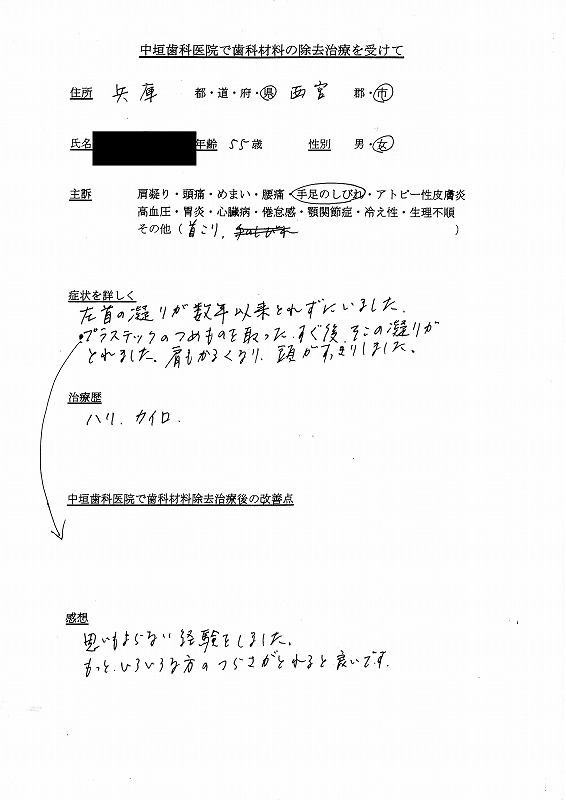 中垣歯科医院で歯科材料の除去治療を受けて
住所 兵庫 都・道・府・県 西宮 郡・市
氏名 年齢 55歳 性別 男・女
主訴 肩凝り・頭痛・めまい・腰痛・手足のしびれ・アトピー性皮膚炎
高血圧・胃炎・心臓病・倦怠感・顎関節症・冷え性・生理不順
その他（首こり、 ）
症状を詳しく
左首の凝りが数年以来とれずにいました.
プラスティックのつめものを取ったすぐ後、そこの凝りが
とれました。肩もかるくなり、頭がすっきりしました。
治療歴
ハリ. カイロ.
中垣歯科医院で歯科材料除去治療後の改善点
感想
思いもよらない経験をしました。
もっといろいろな方のつらさがとれると良いです.